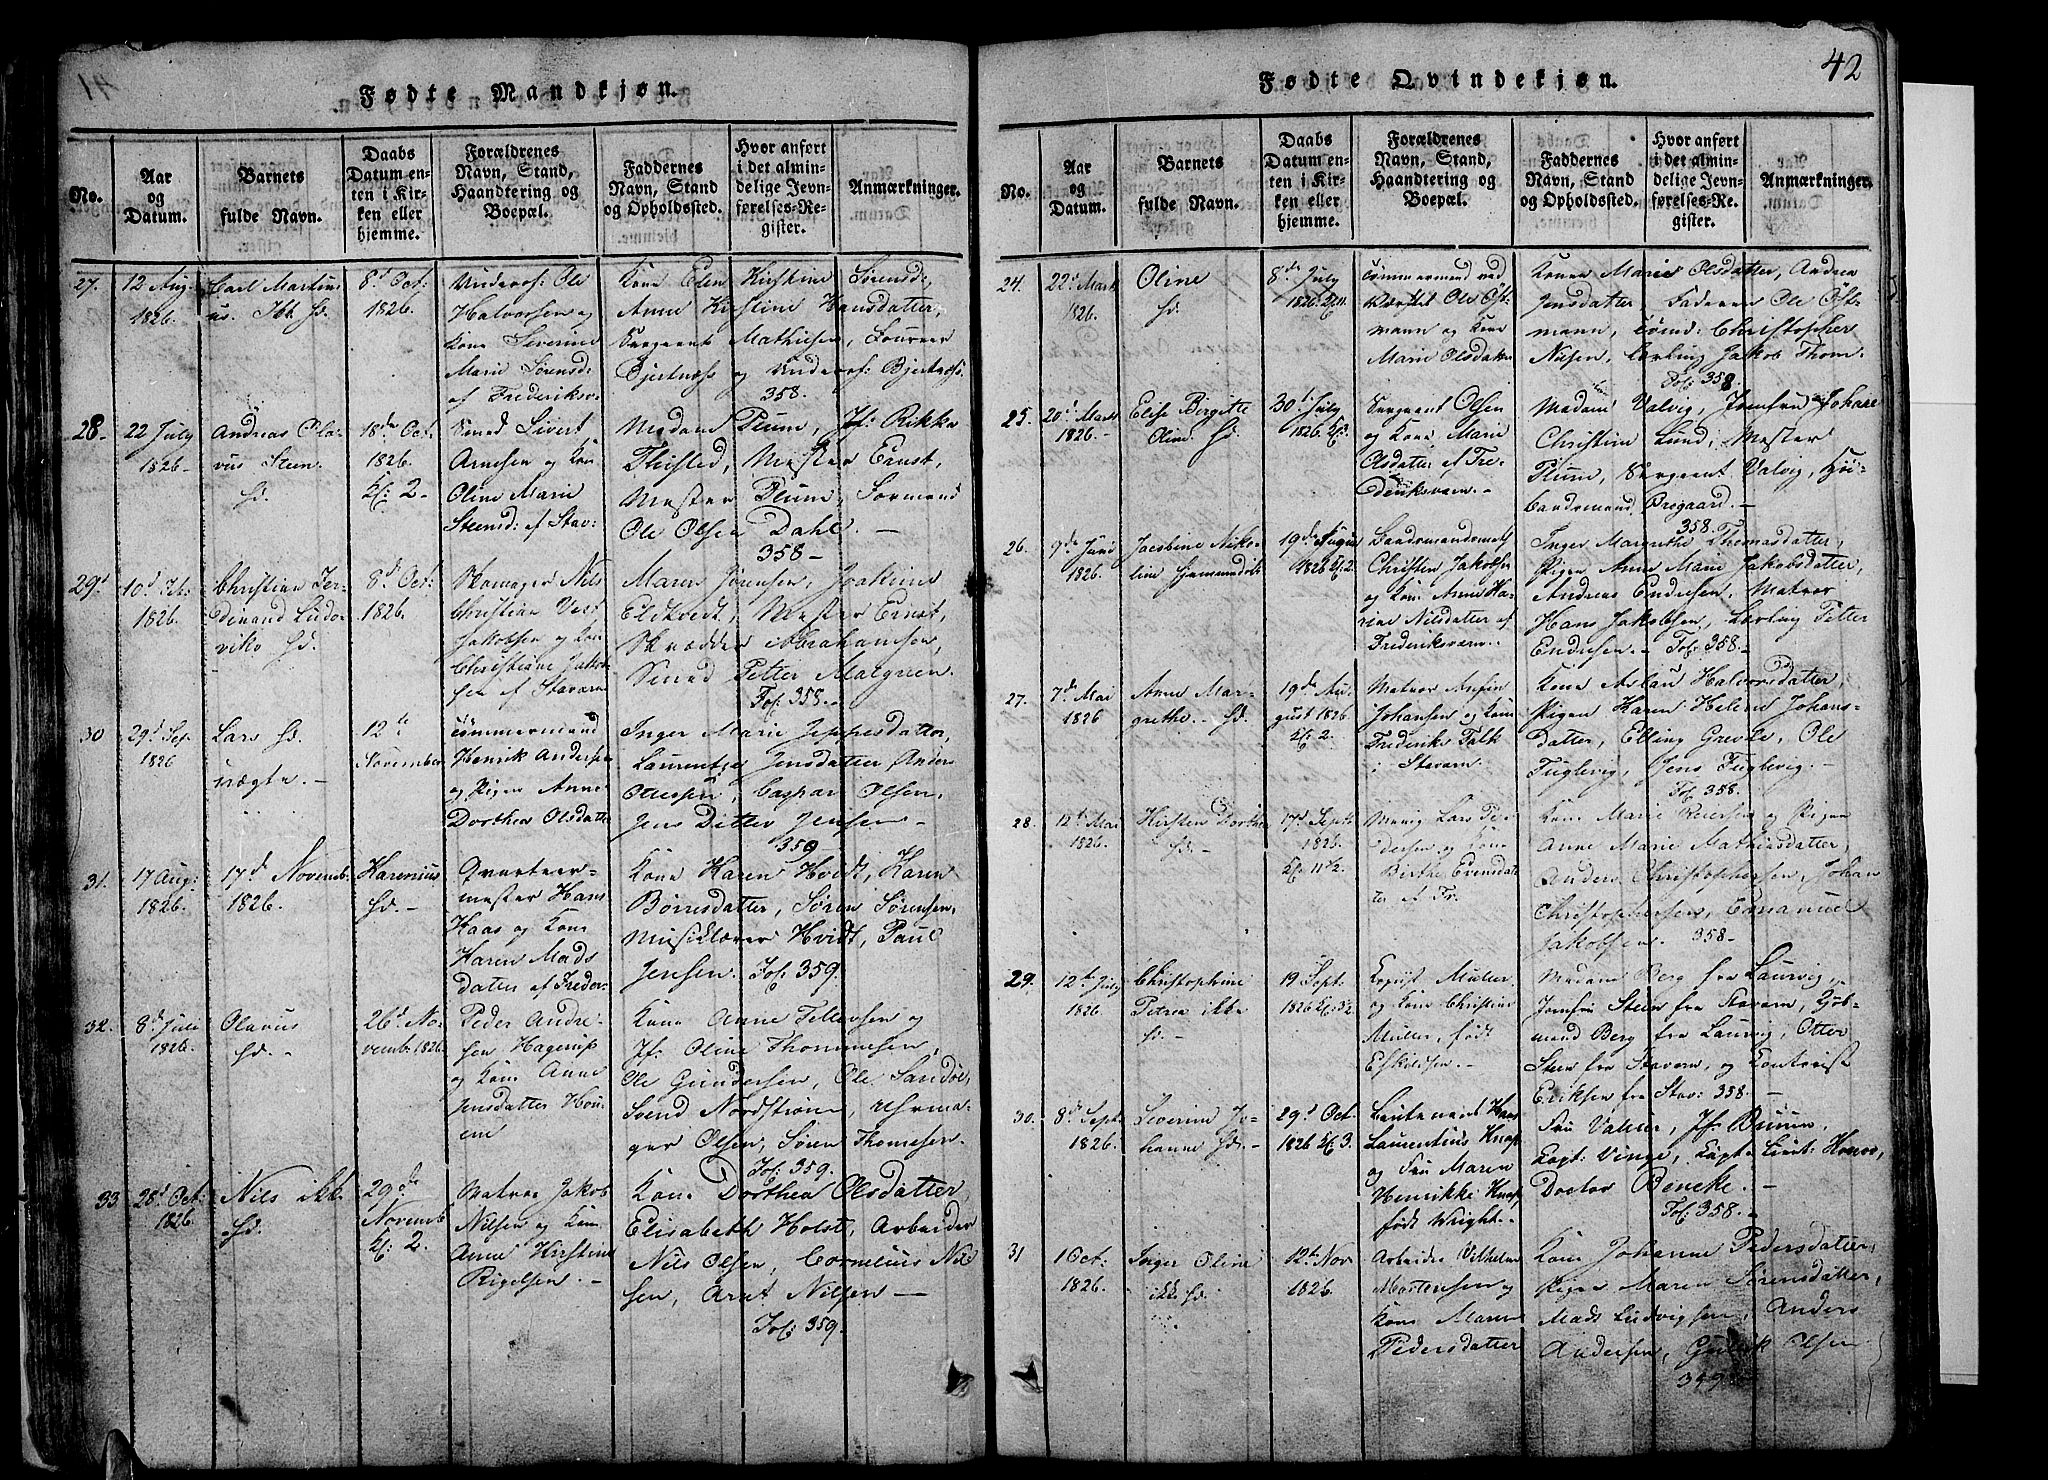 42
Fødte Mandkjøn.
No.
Aar og Datum.
Barnets fulde Navn.
Daabs Datum enten i Kirken eller hjemme.
Forældrenes Navn, Stand, Haandtering og Boepæl.
Faddernes Navn, Stand og Opholdssted.
Hvor anført i det almindelige Jevnførelses-Register.
Anmærkninger.
27.
12 Aug: 1826.
Carl Martinius.
8d Oct: 1826.
Underof: Ole
Halvorsen og
Kone Severine
Marie Sørensd:
af Frederiksv:
Kone Elen Kirstine Sørensd:
Anne Kirstine Hansdatter,
Sergeant Mathiesen, Foureer
Bjertness og Underof: Bjertness.
358.
28.
22 July 1826.
Andreas Olavus Steen
hd.
18de Oct. 1826. Kl: 2.
Smed Sivert
Arnesen og Kone
Oline Marie
Steensd: af Stav:
Madam Plum, Jf: Rikke
Thisted, Mester Ernst,
Mester Plum, Formand
Ole Olsen Dahl. —
358 —
29
1826.
Christian Ferdinand Ludoviko hd.
8d Oct: 1826.
Skomager Nils
Christian Vest
Jakobsen og Kone
Christiane Jakobsen af Stavern
Maren Jørensen, Joakime
Eltkvedt, Mester Ernst,
Skrædder Abrahamsen,
Smed Petter Malgrien.
Fol: 358. —
30
29d Sep. 1826
Lars hd.
uægte. —
12te November
Tømmermand
Henrik Andersen
og Pigen Anne
Dorthea Olsdatter
Inger Marie Jeppesdatter,
Laurentze Jensdatter, Anders
Ottersen, Caspar Olsen,
Jens Ditter Jensen —
359 —
31.
17 Aug: 1826.
17de Novemb. 1826.
Karenius hd. —
Qvarteermester Hans
Haas og Kone
Karen Madsdatter af Freder-
Kone Karen Hvidt, Karen
Børresdatter, Søren Sørensen,
Musiklærer Hvidt, Paul
Jensen. Fol: 359.
32.
8d Juli 1826.
Olavus hd. —
26d Novemb. 1826.
Peder Andresen Hagerup
og Kone Anne
Jensdatter
Kone Anne Tellefsen og
Jf: Oline Thommesen,
Ole Gundersen, Ole Sandøe,
Svend Nordstrøm, Uhrmager Olsen, Søren Thomesen.
Fol: 359.
33
28d Oct: 1826.
Nils ikke hd.
29de Novemb. Kl: 2.
Matros Jakob
Nilsen og Kone
Anne Kirstine
Rigelsen. —
Kone Dorthea Olsdatter,
Elisabeth Holst, Arbeider
Nils Olsen, Cornelius Nilsen, Arnt Nilsen —
Fol: 359.
Fødte Qvindekjøn.
No.
Aar og Datum.
Barnets fulde Navn.
Daabs Datum enten i Kirken eller hjemme.
Forældrenes Navn, Stand, Haandtering og Boepæl.
Faddernes Navn, Stand og Opholdssted.
Hvor anført i det almindelige Jevnførelses-Register.
Anmærkninger.
24.
22d Mart 1826.
Oline hd.
8de July 1826. Kl. 11.
Tømmermand ved
Værftet Ole Østmann og Kone
Marie Olsdatter
Konen Marie Olsdatter, Andrea
Jensdatter, Faderen Ole Østmann, Tømd: Christopher
Nilsen, Lærling Jakob Thom.
Fol: 358.
25.
20d Mart 1826. —
Elise Birgitte
Oline. hd.
30d July 1826. Kl. 3.
Sergeant Olsen
og Kone Marie
Olsdatter af Frederiksværn. —
Madam Valvig, Jomfru Johane
Christine Lund, Mester
Plum, Sergeant Valvig, Høibaadsmand Bregaard. —
358.
26.
9de Juni 1826.
Jacobine Nikoline
19de August 1826 Kl. 2.
Baadsmandsmath
Christen Jakobsen
og Kone Anne Karine Nilsdatter af
Frederiksværn.
Inger Margrethe Thomasdatter,
Pigen Anne Marie Jakobsdatter,
Andreas Endresen, Matros
Hans Jakobsen, Lærling Petter
Endresen. — Fol: 358. —
27.
7de Mai 1826
Anne Margrethe. — hd.
19de August 1826. Kl. 2.
Matros
Johansen og Kone
Frederike Falk
i Stavern.
Kone Aslau Halvorsdatter,
Pigen Karen Helene Johansdatter, Elling Grevle, Ole
Fuglevig, Jens Fuglevig. —
Fol: 358.
28.
12te Mai 1826.
Kirsten Dorthea
hd. —
17d Septb 1826. Kl. 11½.
Lars Pedersen og Kone
Birthe Evensdatter af Fr.
Kone Marie Reiersen og Pigen
Anne Marie Mathiasdatter,
Anders Christophersen, Johan
Christophersen, Emanuel
Jakobsen. 358 —
29.
12te July 1826.
Christophine
Petrea ikke
hd. —
19 Sept. 1826
Copiist Muller
og Kone Christine
Muller, født
Eskildsen. —
Madam Berg fra Laurvig,
Jomfru Steen fra Stavern, Kjøbmand Berg fra Laurvig, Otter
Steen fra Stavern, og Contraist
Eriksen fra Stav: 358. —
30.
8de Septb 1826.
Severine Jehanne hd. —
29d Oct. 1826 Kl. 3.
Lieutenant Hans
Laurentius Knap
og Fru Maren
Henrikke Knap,
født Wright. —
Fru Valeur, Jf. Bruun,
Capt: Vinge, Capt. Lieut:
Doctor Beneke. —
Fol: 358. —
31
1 Oct: 1826.
Inger Oline
ikke hd.
12te Nov 1826.
Arbeider Vilhelm
Mortensen og
Kone Maren
Pedersdatter
Kone Johanne Pedersdatter,
Pigen Maren Sørensdatter,
Mads Ludvigsen, Anders
Andersen, Gulik Olsen
359